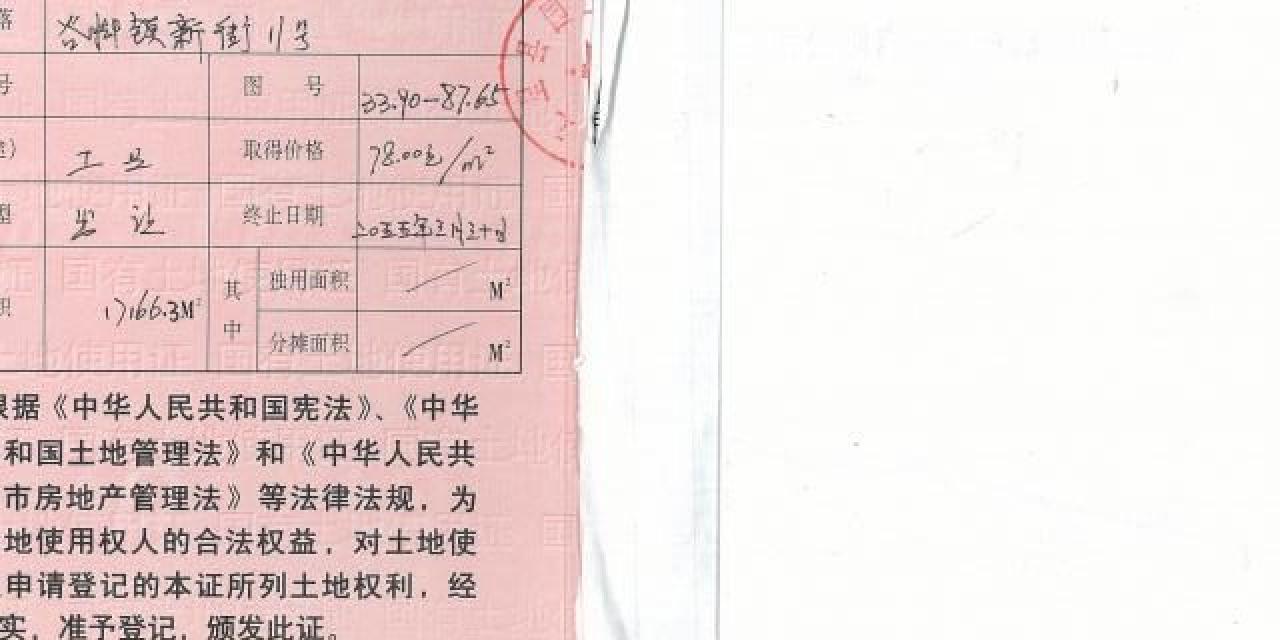 落 洛柳镇新街11号
号 图 号 33.90-87.65
途） 工业 取得价格 78.00元/m²
型 出让 终止日期 二〇五五年三月三十日
积 17166.3M² 其中 独用面积 M²
分摊面积 M²
根据《中华人民共和国宪法》、《中华
和国土地管理法》和《中华人民共
市房地产管理法》等法律法规，为
地使用权人的合法权益，对土地使
申请登记的本证所列土地权利，经
实，准予登记，颁发此证。